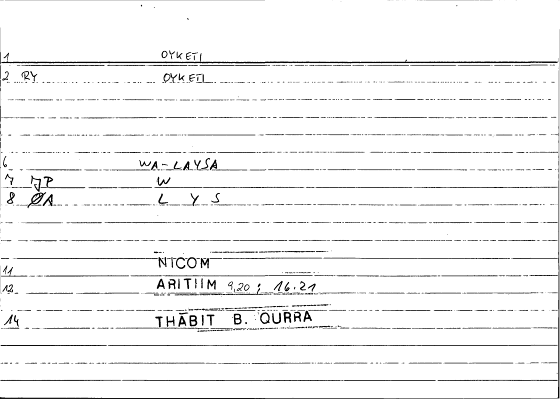 1 OYKETI
2 RY OYKETI
6 WA-LAYSA
7 JP W
8 ØA L Y S
11 NICOM
12 ARITIIM 9,20 ; 16.21
14 THĀBIT B. QURRA